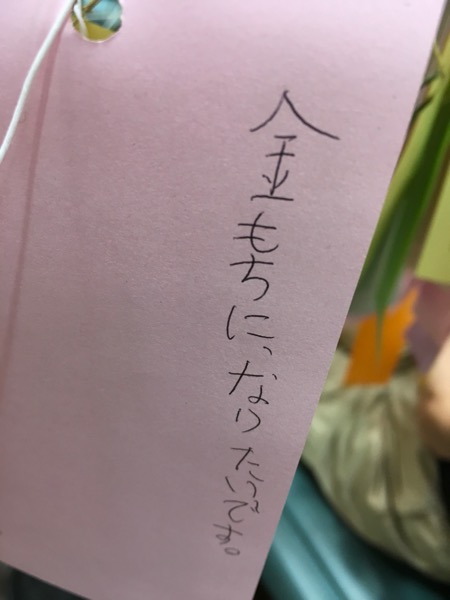 金もちに、なりたいです。